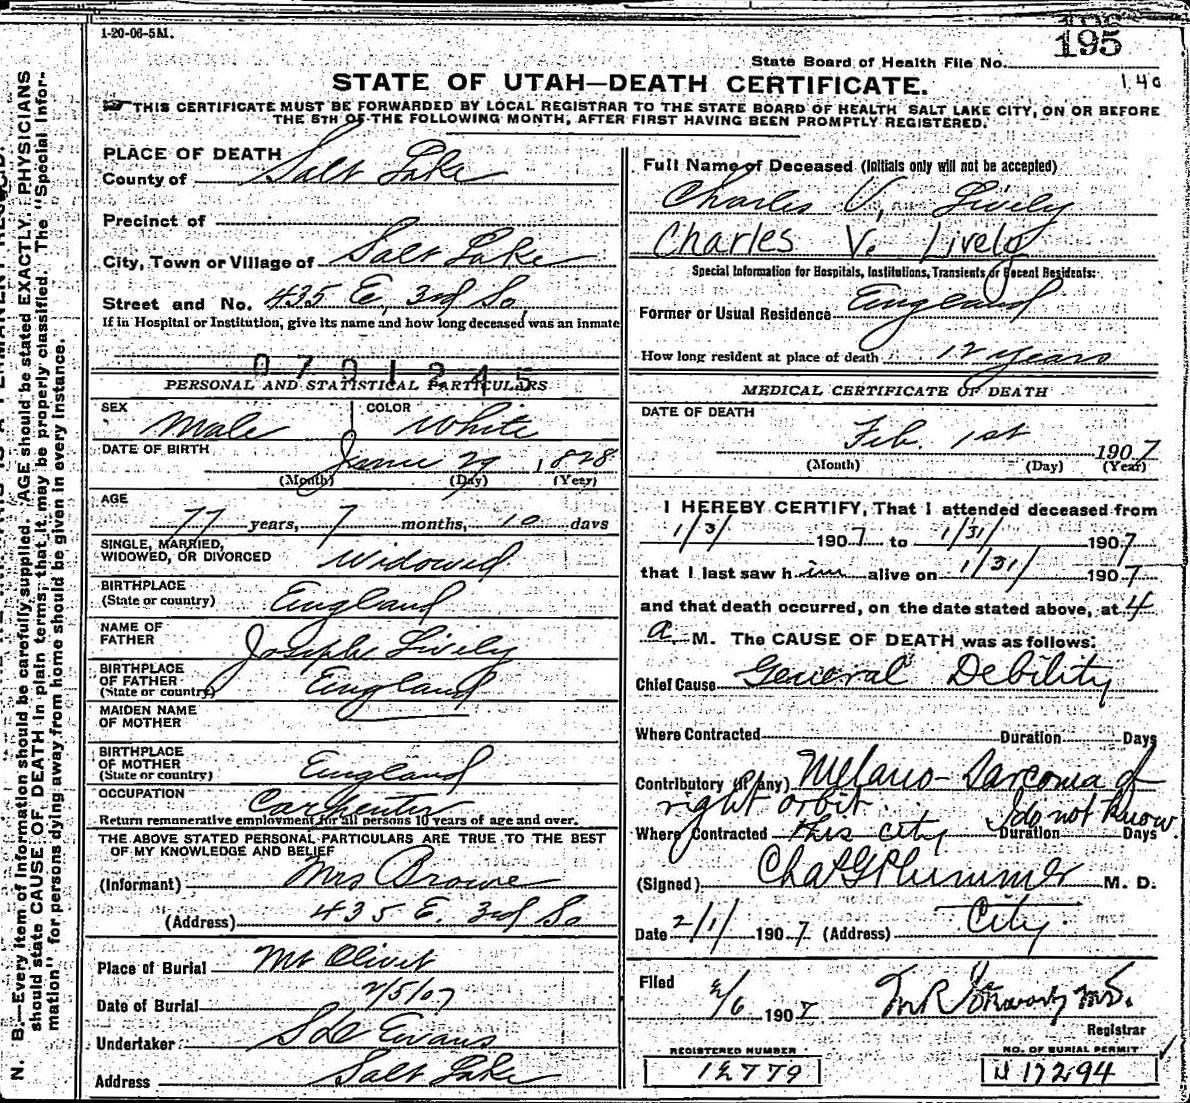 1-20-06-5M.
195
State Board of Health File No.
140
STATE OF UTAH—DEATH CERTIFICATE.
THIS CERTIFICATE MUST BE FORWARDED BY LOCAL REGISTRAR TO THE STATE BOARD OF HEALTH SALT LAKE CITY, ON OR BEFORE
THE 5TH OF THE FOLLOWING MONTH, AFTER FIRST HAVING BEEN PROMPTLY REGISTERED.
PLACE OF DEATH
County of Salt Lake
Precinct of
City, Town or Village of Salt Lake
Street and No. 435 E, 3rd So,
If in Hospital or Institution, give its name and how long deceased was an inmate
0701245
PERSONAL AND STATISTICAL PARTICULARS
SEX Male COLOR White
DATE OF BIRTH June 29 1828
(Month) (Day) (Year)
AGE
77 years, 7 months, 10 days
SINGLE, MARRIED,
WIDOWED, OR DIVORCED Widowed
BIRTHPLACE
(State or country) England
NAME OF
FATHER Joseph Lively
BIRTHPLACE
OF FATHER
(State or country) England
MAIDEN NAME
OF MOTHER
BIRTHPLACE
OF MOTHER
(State or country) England
OCCUPATION Carpenter
Return remunerative employment for all persons 10 years of age and over.
THE ABOVE STATED PERSONAL PARTICULARS ARE TRUE TO THE BEST
OF MY KNOWLEDGE AND BELIEF
(Informant) Mrs Browe
(Address) 435 E. 3rd So
Place of Burial Mt Olivet
Date of Burial 2/5/07
Undertaker Evans
Address Salt Lake
Full Name of Deceased (Initials only will not be accepted)
Charles V. Lively
Charles V. Lively
Special Information for Hospitals, Institutions, Transients or Recent Residents:
Former or Usual Residence England
How long resident at place of death 12 years
MEDICAL CERTIFICATE OF DEATH
DATE OF DEATH
Feb. 1st 1907
(Month) (Day) (Year)
I HEREBY CERTIFY, That I attended deceased from
1/3/ 1907 to 1/31/ 1907
that I last saw him alive on 1/31/ 1907
and that death occurred, on the date stated above, at 4
a M. The CAUSE OF DEATH was as follows:
Chief Cause General Debility
Where Contracted Duration Days
Contributory (if any) Melano-Sarcoma of
right orbit I do not know
Where Contracted this city Duration Days
(Signed) Chas G Plummer M. D.
Date 2/1/ 1907 (Address) City
Filed 2/6 1907 M.D.
Registrar
REGISTERED NUMBER
12779
NO. OF BURIAL PERMIT
N 17294
N. B.—Every item of information should be carefully supplied. AGE should be stated EXACTLY. PHYSICIANS
should state CAUSE OF DEATH in plain terms, that it may be properly classified. The "Special Infor-
mation" for persons dying away from home should be given in every instance.